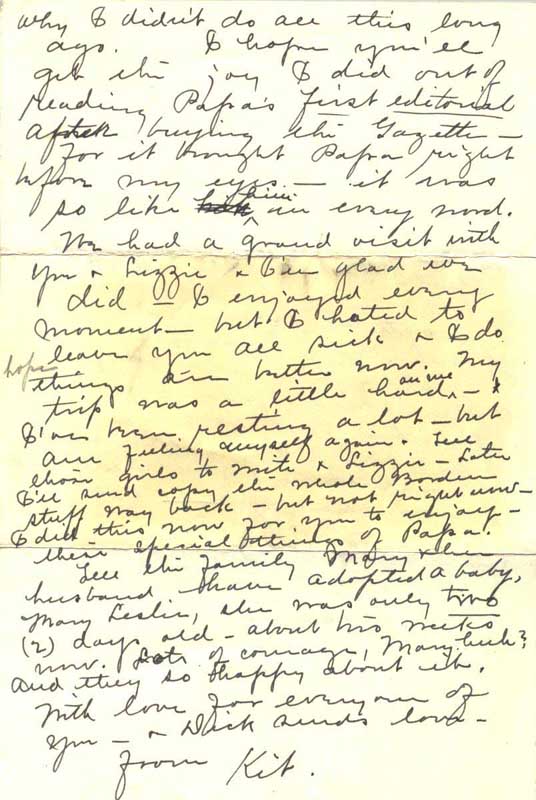 why I didn't do all this long
ago. I hope you'll
get the joy I did out of
reading Papa's first editorial
after buying the Gazette -
for it brought Papa right
before my eyes - it was
so like him in every word.
We had a grand visit with
you & Lizzie & I'm glad we
did - I enjoyed every
moment - but I hated to
leave you all sick & I do
hope
things are better now. My
trip was a little hard on me - &
I've been resting a lot - but
am feeling myself again. Tell
those girls to write & Lizzie - Later
I'll send copy the whole Borden
stuff way back - but not right now -
I did this now for you to enjoy -
these special things of Papa.
Tell the family Mary & her
husband have adopted a baby,
Mary Leslie, she was only two
(2) days old - about two weeks
now. Lots of courage, Mary, huh?
And they so happy about it.
With love for everyone of
you - & Dick sends love -
from Kit.